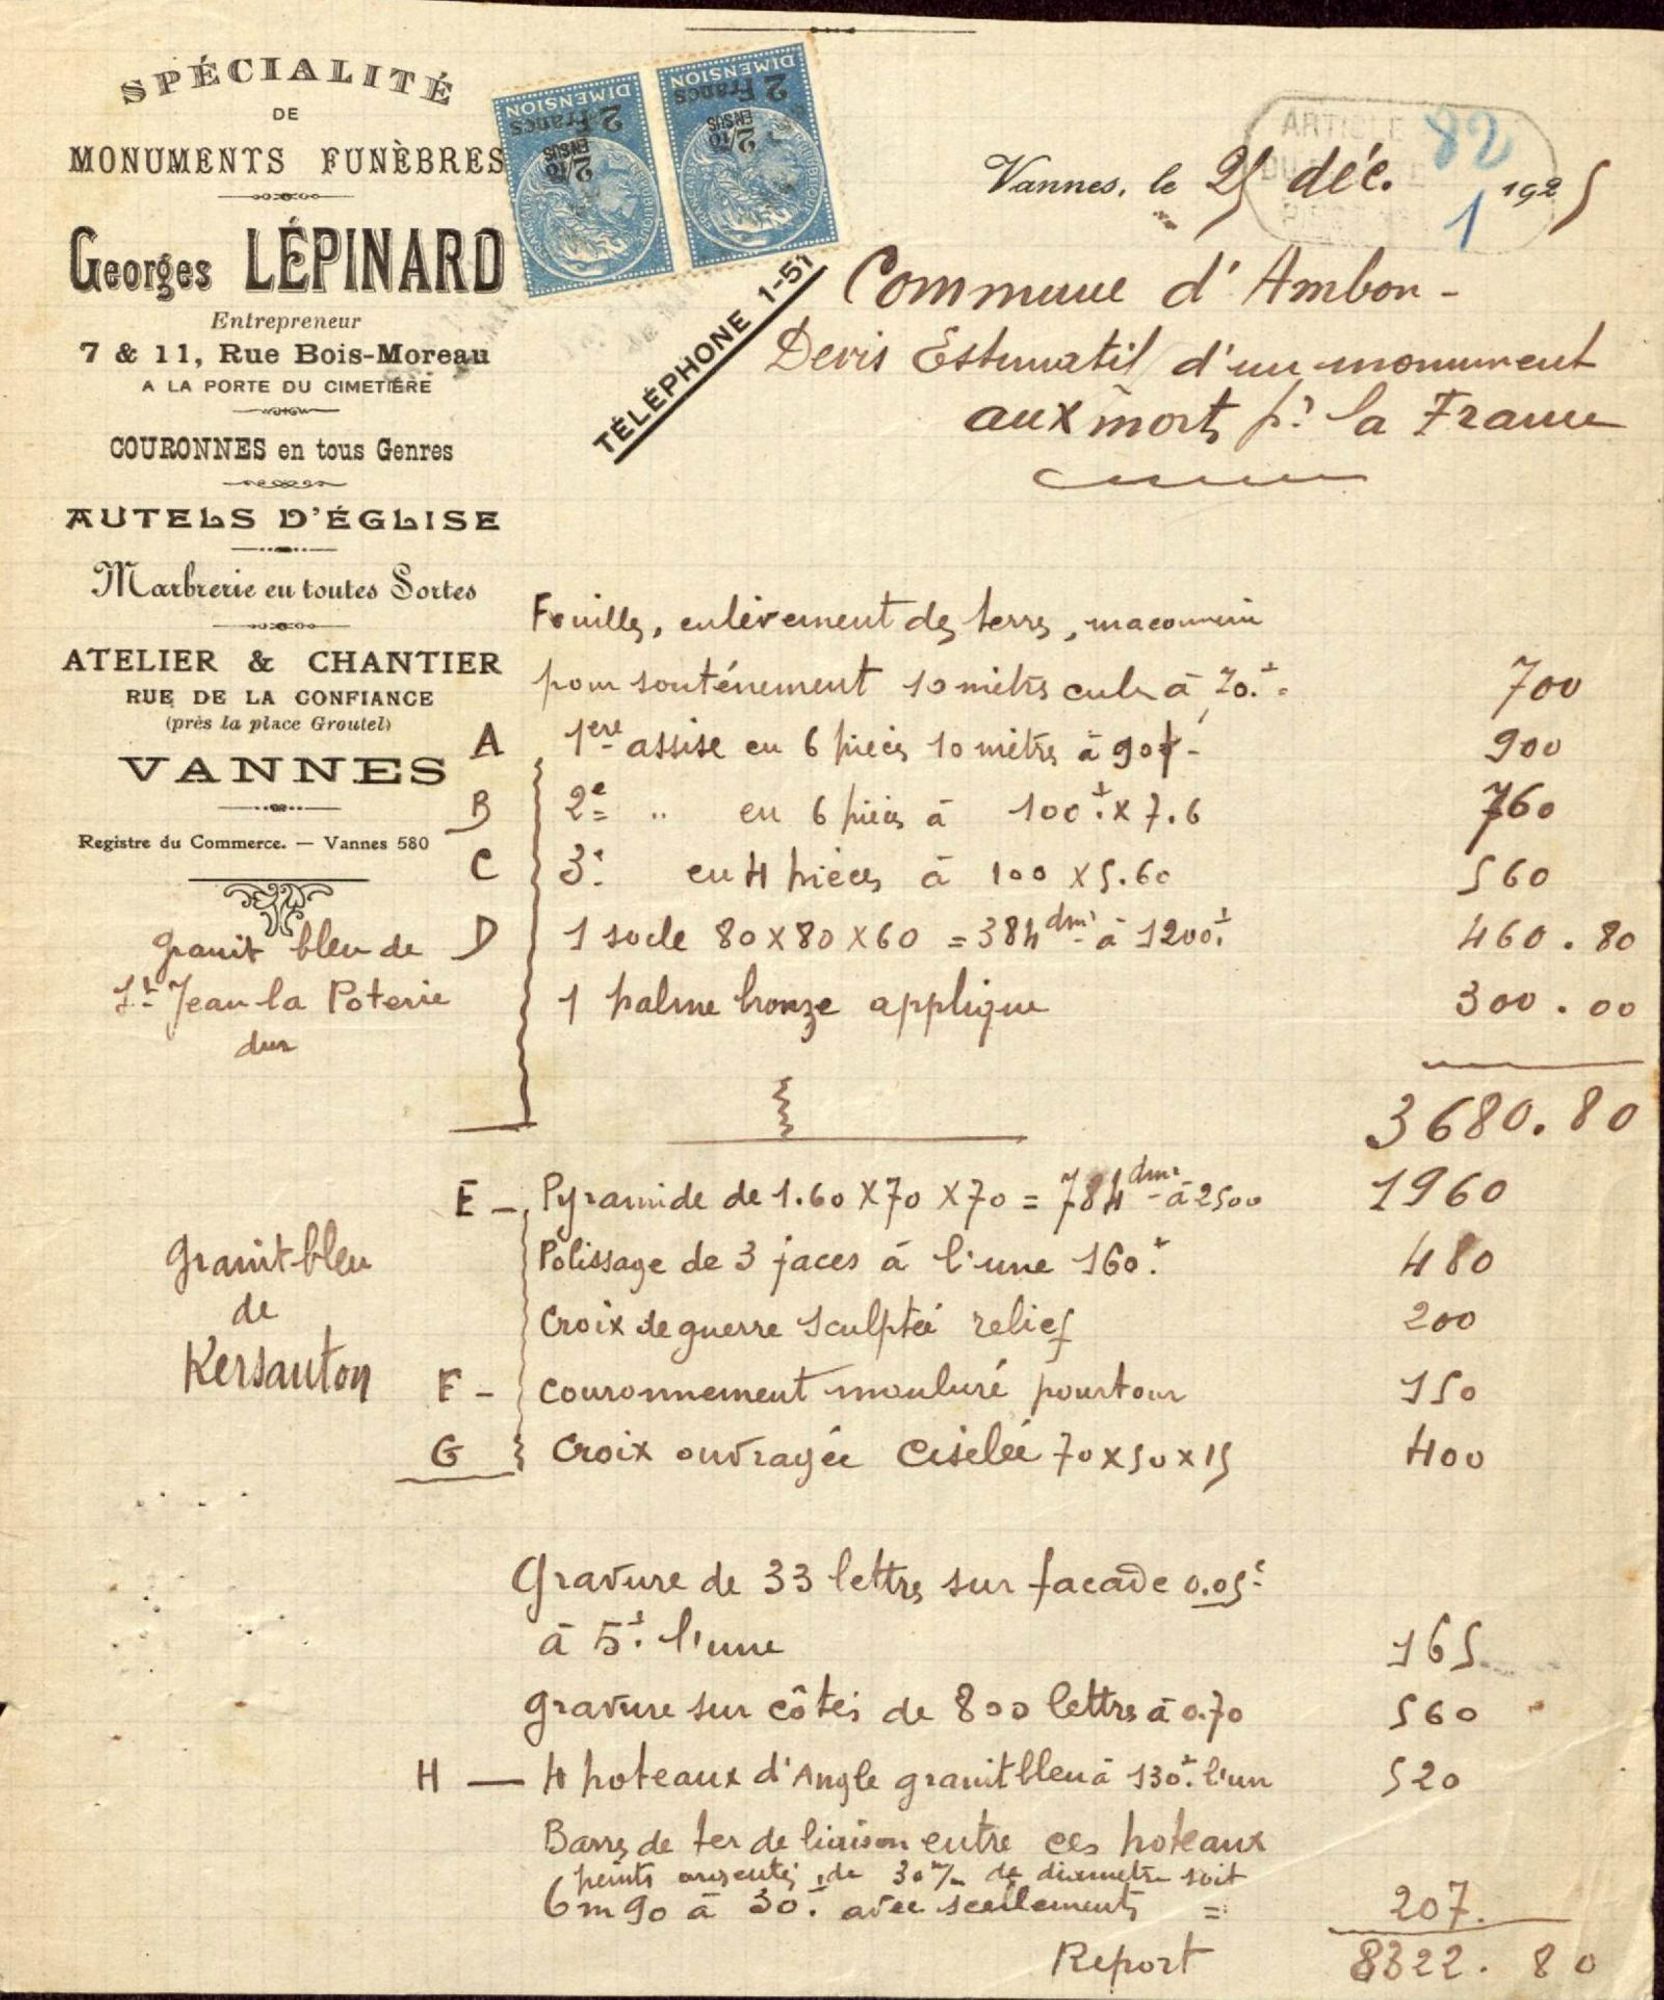 SPÉCIALITÉ
DE
MONUMENTS FUNÈBRES
Georges LÉPINARD
Entrepreneur
7 & 11, Rue Bois-Moreau
A LA PORTE DU CIMETIÈRE
COURONNES en tous Genres
AUTELS D'ÉGLISE
Marbrerie en toutes Sortes
ATELIER & CHANTIER
RUE DE LA CONFIANCE
(près la place Groutel)
VANNES
Registre du Commerce. — Vannes 580
DIMENSION
2 Francs
2/10
EN SUS
DIMENSION
2 Francs
2/10
EN SUS
TÉLÉPHONE 1-51
ARTICLE
82
1
Vannes, le 25 déc. 1925
Commune d'Ambon -
Devis Estimatif d'un monument
aux mort pr la France
Fouilles, enlèvement des terres, maconnerie
pour souténement 10 mètres cube à 70.f = 700
A 1ere assise en 6 pièces 10 mètres à 90f - 900
B 2e " en 6 pièces à 100f. x 7.6 760
C 3e en 4 pièces à 100 x 5.60 560
D 1 socle 80 x 80 x 60 = 384 dm3 à 1200f 460.80
1 palme bronze applique 300.00
Granit bleu de
St Jean la Poterie
dur
3680.80
E - Pyramide de 1.60 x 70 x 70 = 784 dm3 à 2500 1960
Polissage de 3 faces à l'une 160f 480
Croix de guerre sculptée relief 200
F - couronnement mouluré pourtour 150
G Croix ouvragée ciselée 70 x 50 x 15 400
Granit bleu
de
Kersanton
Gravure de 33 lettres sur facade 0.05c
à 5f. l'une 165
gravure sur côtés de 800 lettres à 0.70 560
H — 4 poteaux d'Angle granit bleu à 130f. l'un 520
Barres de fer de liaison entre ces poteaux
peints argentés, de 30 m/m de diametre soit
6m90 à 30f. avec scellements = 207.
Report 8322.80